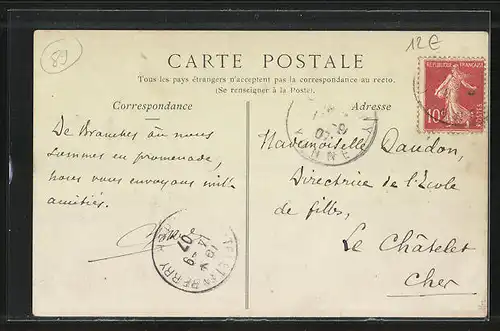 89
12€
CARTE POSTALE
Tous les pays étrangers n'acceptent pas la correspondance au recto.
(Se renseigner à la Poste).
Correspondance
Adresse
RÉPUBLIQUE FRANÇAISE
10
YONNE
De Branches où nous
sommes en promenade,
nous vous envoyons mille
amitiés.
Mademoiselle Daudon,
Directrice de l'École
de filles,
Le Châtelet
Cher
BERRY
07